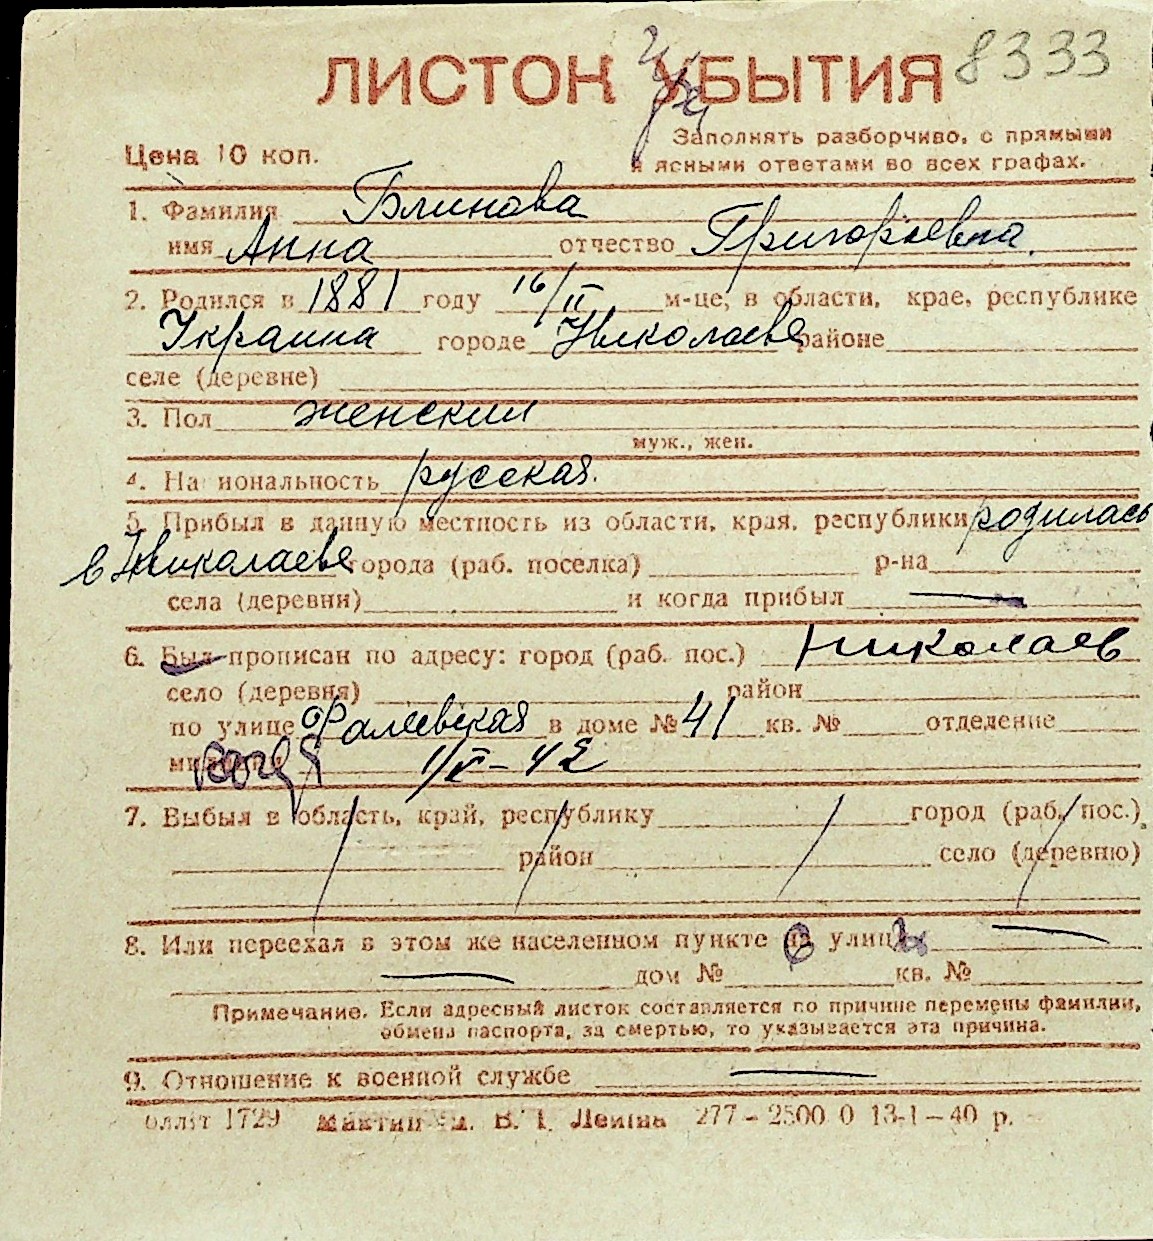 8333
ЛИСТОК УБЫТИЯ
Цена 10 коп.
Заполнять разборчиво, с прямыми
и ясными ответами во всех графах.
1. Фамилия Блинова
имя Анна отчество Григорьевна.
2. Родился в 1881 году 16/II м-це, в области, крае, республике
Украина городе Николаеве районе
селе (деревне)
3. Пол женский
муж., жен.
4. На иональность русская.
5. Прибыл в данную местность из области, края, республики родилась
в Николаеве города (раб. поселка) р-на
села (деревни) и когда прибыл —
6. Был прописан по адресу: город (раб. пос.) Николаев
село (деревня) район
по улице Фалеевская в доме № 41 кв. № отделение
1/V-42
7. Выбыл в область, край, республику город (раб. пос.)
район село (деревню)
8. Или переехал в этом же населенном пункте на улицу —
— дом № кв. №
Примечание. Если адресный листок составляется по причине перемены фамилии,
обмена паспорта, за смертью, то указывается эта причина.
9. Отношение к военной службе —
1729 им. В. І. Леніна 277 – 2500 0 13-1 – 40 р.